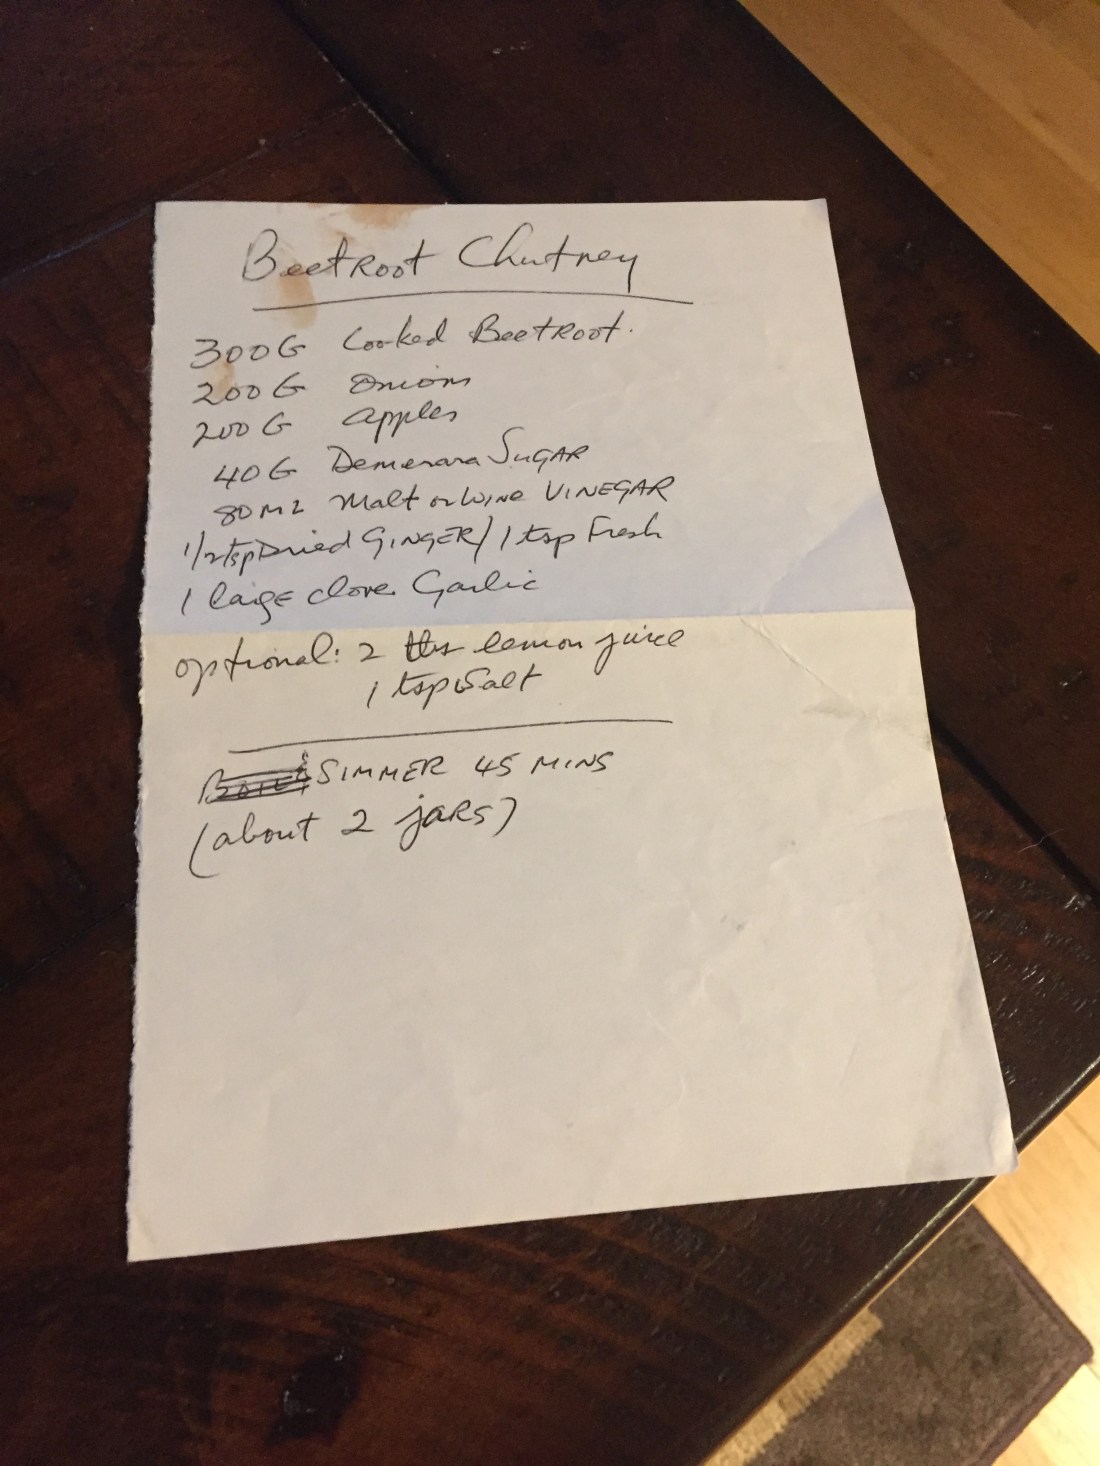 BeetRoot Chutney
300G Cooked BeetRoot.
200G Onions
200G apples
40G Demerara SUGAR
80ML Malt or Wine VINEGAR
1/2 tsp Dried GINGER/1 tsp Fresh
1 large clove Garlic
optional: 2 tbs lemon juice
1 tsp Salt
SIMMER 45 MINS
(about 2 jars)